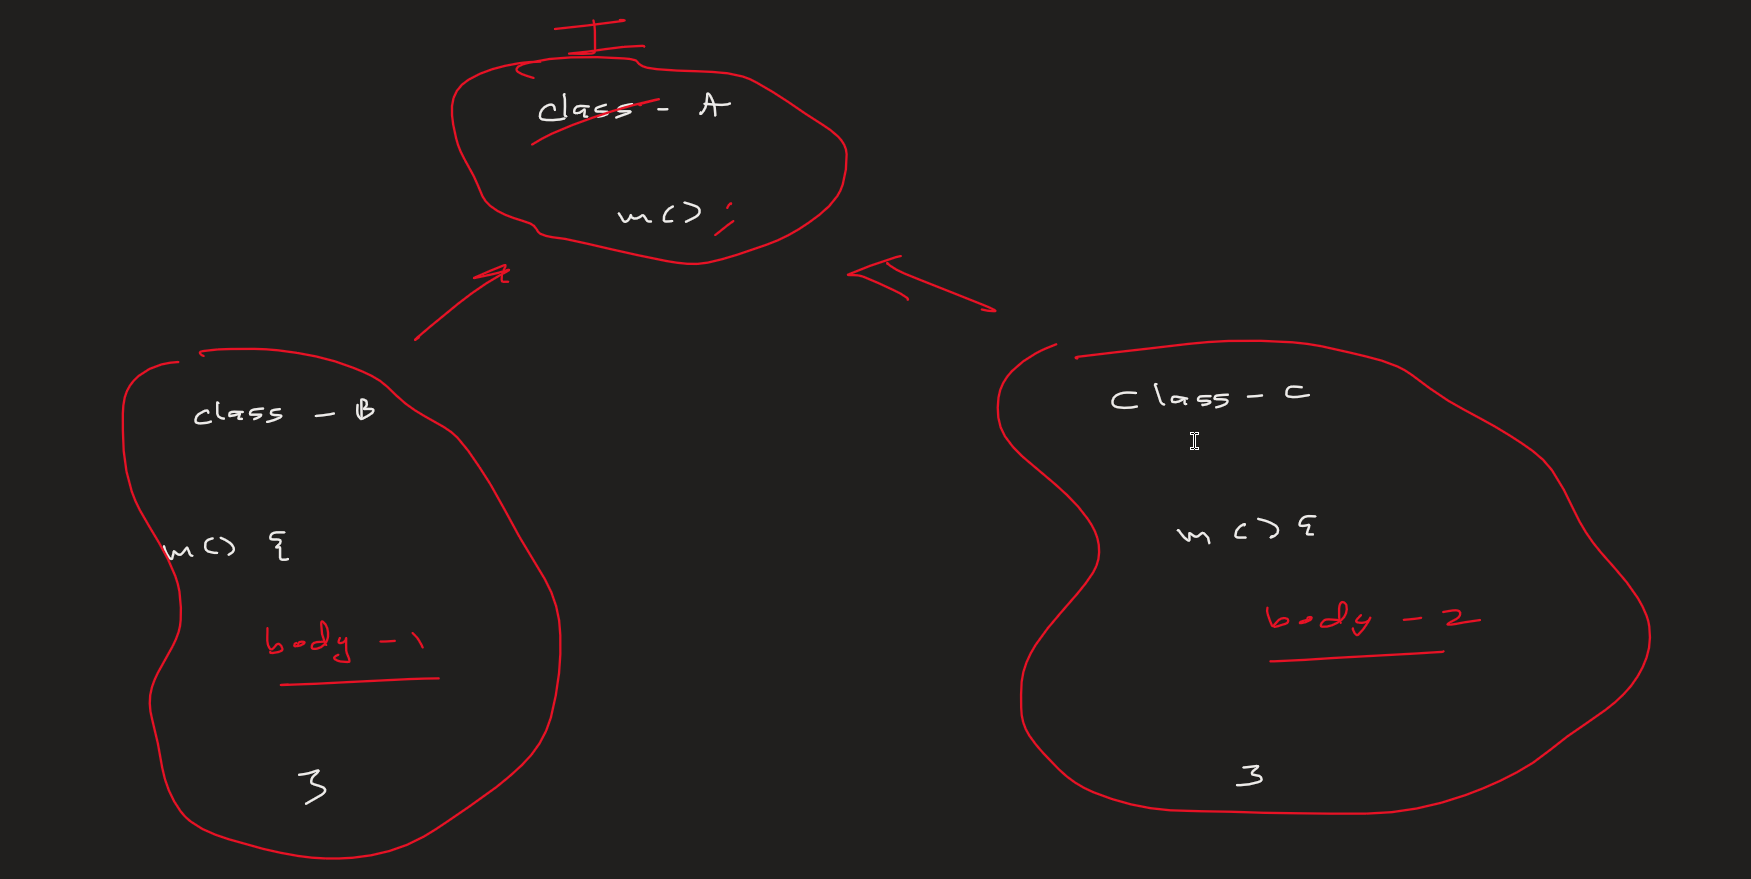 I
class - A
m() ;
class - B
m() {
body - 1
}
class - C
m() {
body - 2
}